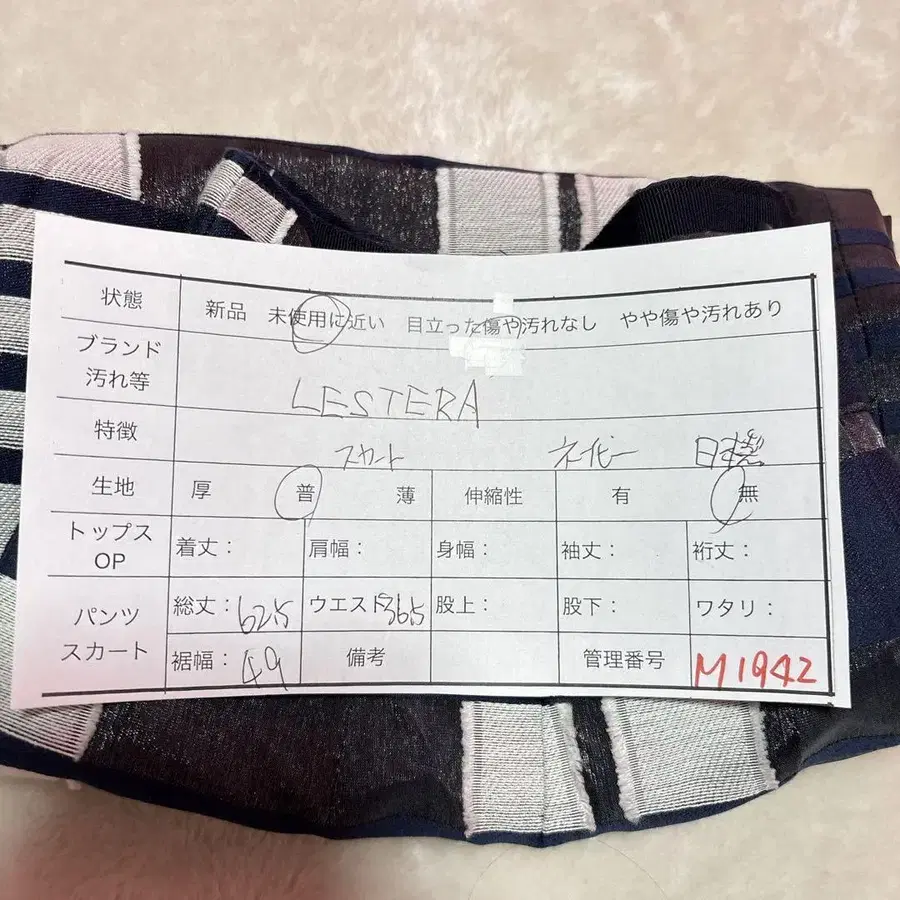 状態 新品 未使用に近い 目立った傷や汚れなし やや傷や汚れあり
ブランド
汚れ等
LESTERA
特徴 スカート ネイビー 日本製
生地 厚 普 薄 伸縮性 有 無
トップス
OP
着丈: 肩幅: 身幅: 袖丈: 裄丈:
パンツ
スカート
総丈:62.5 ウエスト36.5 股上: 股下: ワタリ:
裾幅:49 備考 管理番号 M1942